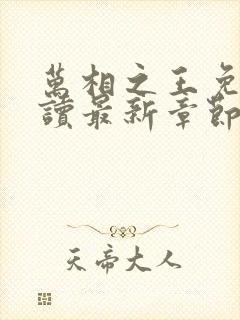 萬相之王免
讀最新章節
天帝大人